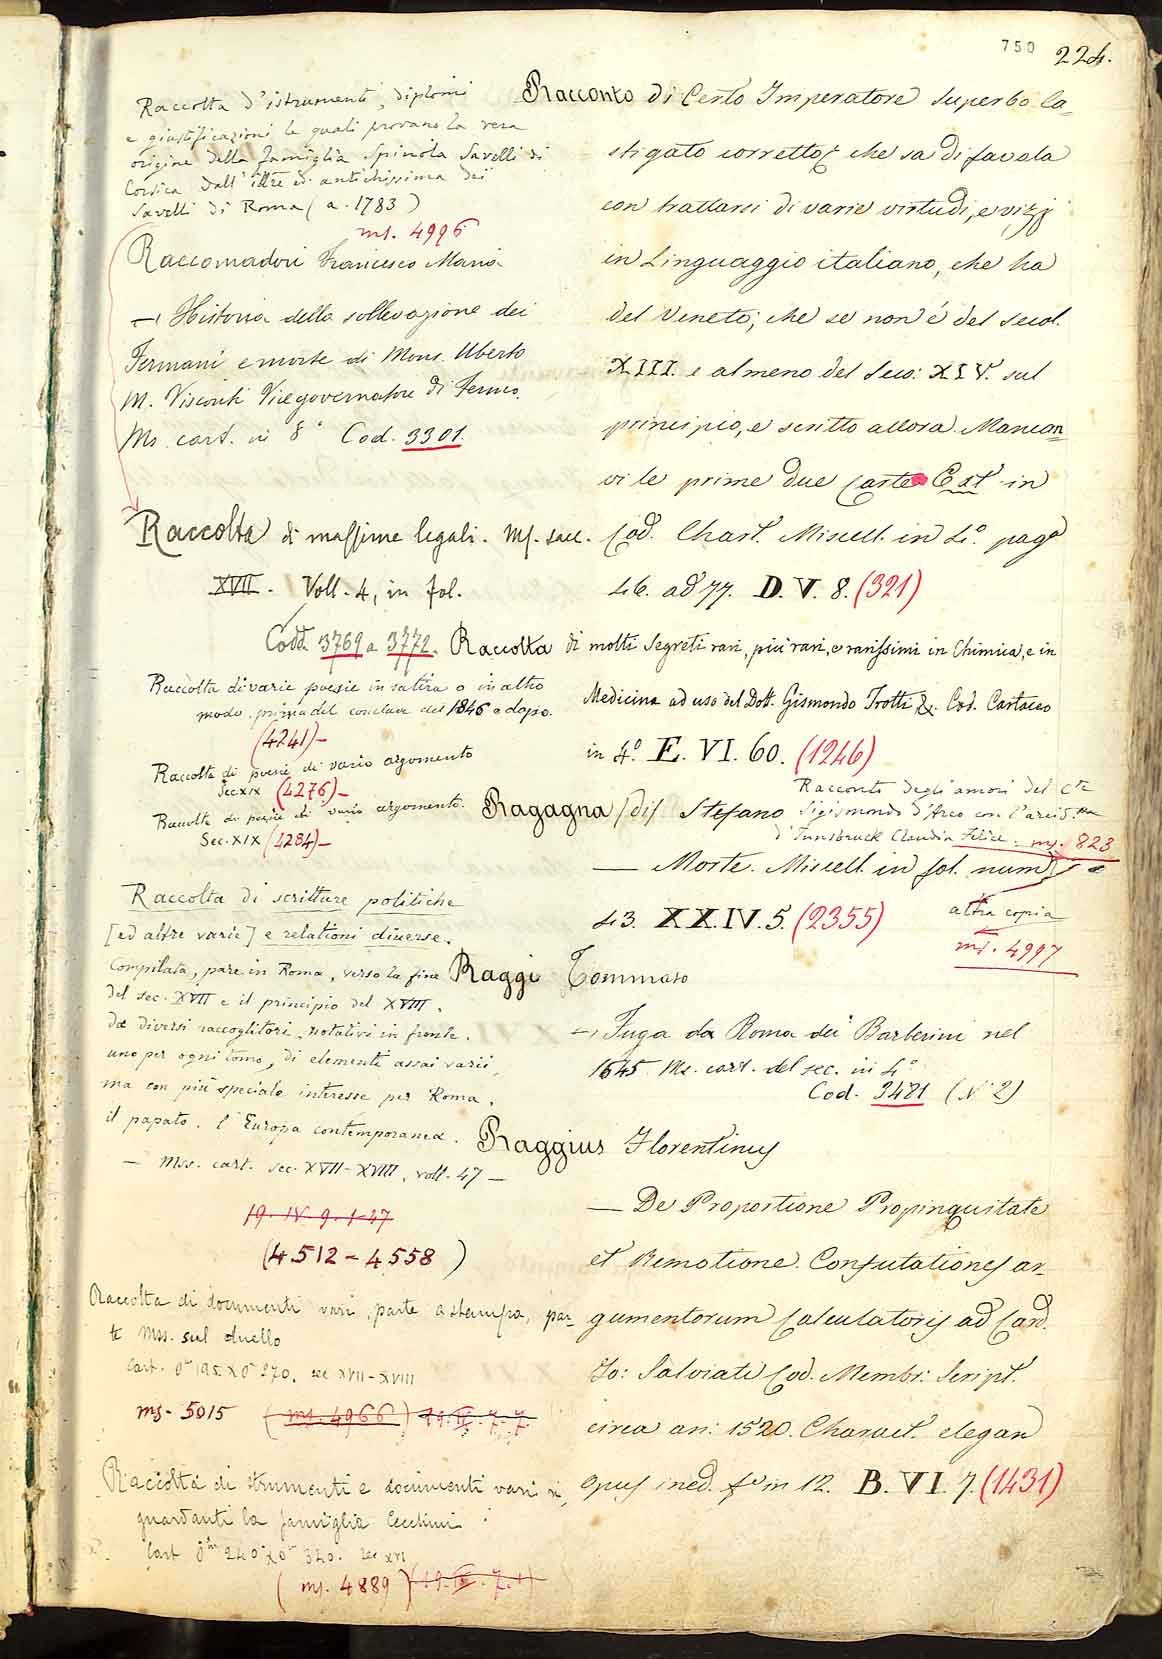 750
224.
Raccolta d'istrumenti, diplomi
e giustificazioni le quali provano la vera
origine della famiglia Spinola Savelli di
Corsica dall' illre ed antichissima dei
Savelli di Roma (a. 1783)
ms. 4996
Raccomadori Francesco Maria
— Historia della sollevazione dei
Fermani e morte di Mons. Uberto
M. Visconti Vicegovernatore di Fermo.
Ms. cart. in 8° Cod. 3301.
Raccolta di massime legali. Ms. saec.
XVII. Voll. 4, in fol.
Codd. 3769 a 3772.
Raccolta di varie poesie in satira o in altro
modo, prima del conclave del 1846 e dopo.
(4241)–
Raccolta di poesie di vario argomento
Sec XIX (4276)–
Raccolta di poesie di vario argomento.
Sec. XIX (4284)–
Raccolta di scritture politiche
[ed altre varie] e relationi diverse.
Compilata, pare in Roma, verso la fine
del sec. XVII e il principio del XVIII,
da diversi raccoglitori, notativi in fronte,
uno per ogni tomo, di elementi assai varii,
ma con più speciale interesse per Roma,
il papato, l'Europa contemporanea.
— Mss. cart. sec. XVII–XVIII, voll. 47 —
19. IV. 9. 1-47
(4512 – 4558)
Raccolta di documenti vari, parte a stampa, par-
te Mss. sul duello
Cart. 0m 195 x 0m 270. sec XVII–XVIII
ms. 5015 (ms. 4966) 19. IX. 7. 7.
Raccolta di strumenti e documenti vari ri-
guardanti la famiglia Cecchini
Cart 0m 240 x 0m 340. sec XVI
(ms. 4889) (19. IX. 7. 1)
Racconto di Certo Imperatore superbo ca=
stigato corretto, che sa di favola
con trattarsi di varie virtudi, e vizj
in Linguaggio italiano, che ha
del Veneto; che se non é del secol.
XIII. e almeno del Seco: XIV. sul
principio, e scritto allora. Mancan=
vi le prime due Carte. Est in
Cod. Chart. Miscell. in 4.° pag.
46. ad 77. D. V. 8. (321)
Raccolta di molti Segreti rari, più rari, e rarissimi in Chimica, e in
Medicina ad uso del Dott. Gismondo Trotti &. Cod. Cartaceo
in 4.° E. VI. 60. (1246)
Racconti degli amori del Cte
Sigismondo d'Arco con l'arcid.ssa
d'Innsbruck Claudia Felice. ms. 823
altra copia
ms. 4997
Ragagna (di) Stefano
— Morte. Miscell. in fol. num.
43. XXIV. 5. (2355)
Raggi Tommaso
— Fuga da Roma dei Barberini nel
1645 Ms. cart. del sec. in 4°
Cod. 3481 (N° 2)
Raggius Florentinus
— De Proportione Propinquitate
et Remotione. Confutationes ar-
gumentorum Calculatoris ad Card.
Jo: Salviati Cod. Membr: Script.
circa an: 1520. Charact. elegan
Opus ined. in 12. B. VI. 7. (1431)